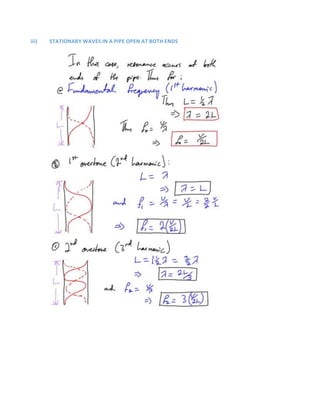 iii) STATIONARY WAVES IN A PIPE OPEN AT BOTH ENDS
In this case, resonance occurs at both
ends of the pipe. Thus for:
ⓐ Fundamental Frequency (1st harmonic)
Thus L = ½ λ
⇒ λ = 2L
L
Thus f₀ = v/λ
⇒ f₀ = v/2L
ⓑ 1st overtone (2nd harmonic):
L = λ
⇒ λ = L
L
and f₁ = v/λ = v/L = 2/2 v/L
⇒ f₁ = 2(v/2L)
ⓒ 2nd overtone (3rd harmonic)
L = 1½ λ = 3/2 λ
⇒ λ = 2L/3
L
and f₂ = v/λ
⇒ f₂ = 3(v/2L)